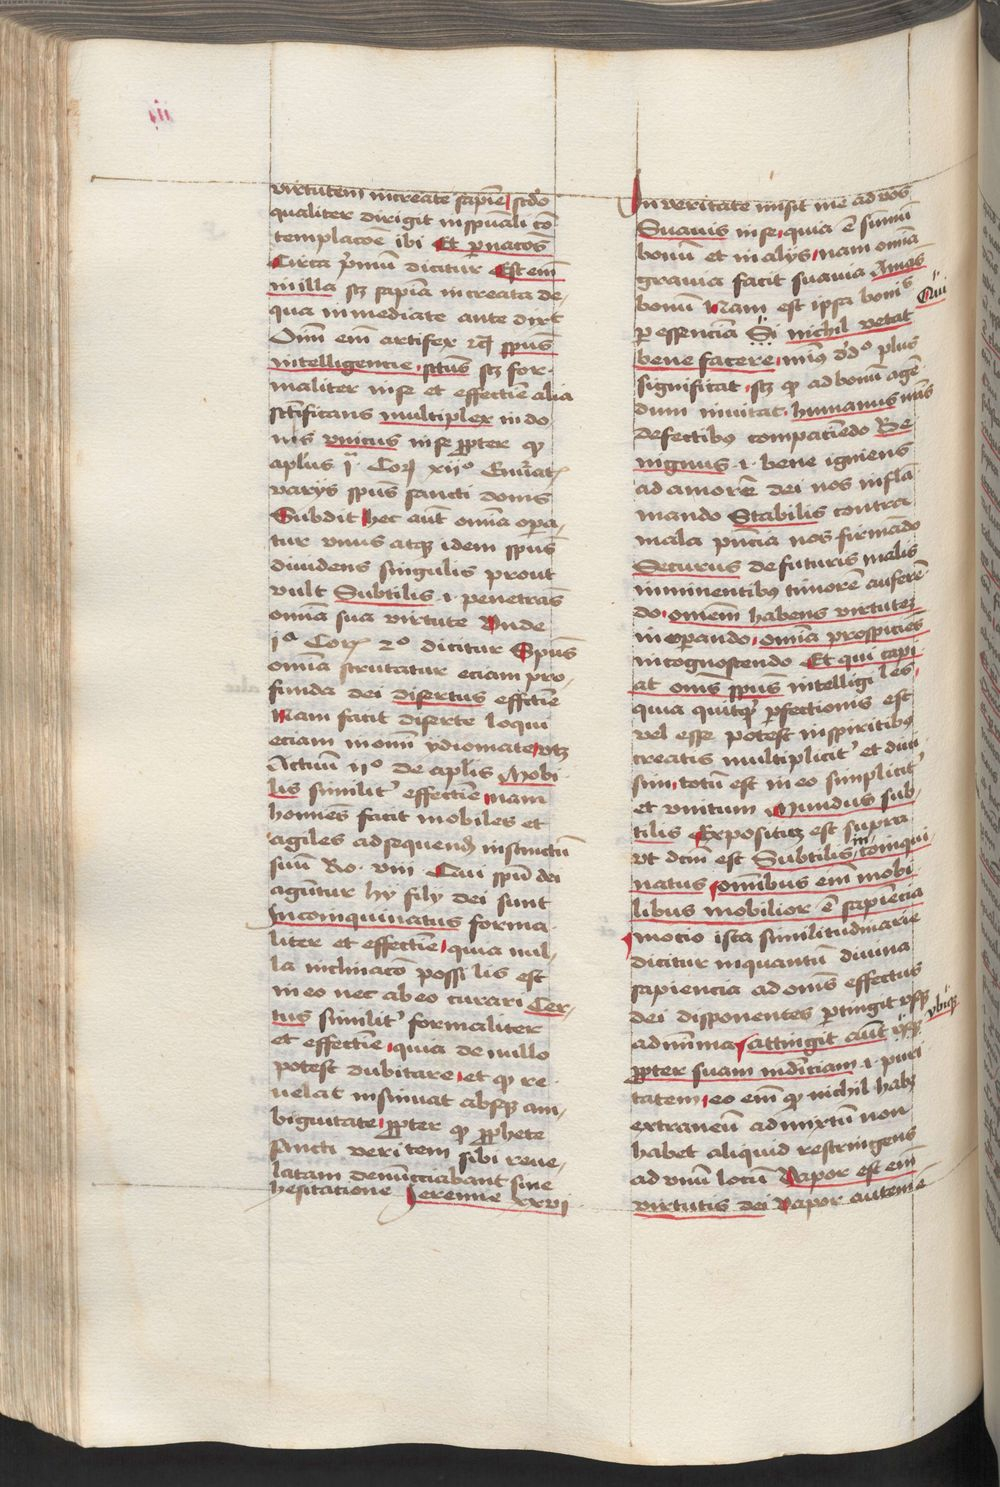 iij
virtutem increate sapie scdo
qualiter dirigit in spuali co
templacoe ibi Et p nacos
Circa pmu dicitur Est em
in illa scz sapia increata de
qua inmediate ante dixt
Oim em artifex spus
intelligencie sctus scz for
maliter in se et effectie alia
sctificans multiplex in do
nis vnicus in se ppter qd
aplus ia Cor xiio Enuat
varijs spus sancti donis
Subdit hec aut omia opa
tur vnus atqz idem spus
diuidens singulis prout
vult Subtilis .i. penetras
omia sua virtute Vnde
ia Cor 2o dicitur Spus
omia scrutatur eciam pro
funda dei disertus effectie
Nam facit diserte loqui
eciam in omni ydiomate vtz
Actuu 11o de aplis Mobi
lis similit effectie nam
homies facit mobiles et
agiles ad sequend instinctu
suu Ro. viii Qui spu dei
aguntur hy filij dei sunt
Incoinquinatus forma
liter et effectie quia nul
la inclinaco possi lis est
in eo nec ab eo curari Cer
tus similit formaliter
et effectie quia de nullo
potest dubitare et qd re
uelat insinuat absqz am
biguitate ppter qd pphete
sancti veri tem sibi reue
latam denucciabant sine
hesitatione Jeremie xxvi
In veritate misit me ad vos
Suauis in se quia e summu
bonu et in alijs nam omia
grauia facit suauia Amas
bonu Nam est ipsa bonis
per essencia Si nichil vetat
Qui
bene facere mi do plus
significat scz qd ad bonu age
dum inuitat humanus nris
defectibus compaciedo Be
nignus .i. bene igniens
ad amore dei nos infla
mando Stabilis contra
mala pncia nos firmado
Securus de futuris malis
imminentibus timore aufere
do omem habens virtutez
in operando omia prospicies
in cognoscendo Et qui capi
at oms spus intelligi les
quia quitqd pfectionis est
vel esse potest in spiritibus
creatis multiplicit et diui
sim totu est in eo simplicit
et vnitum Mundus sub
tilis Expositu est supra
vt dcm est Subtilis in coinqui
natus omibus em mobi
libus mobilior e sapiencia
motio ista similitudinarie
dicitur inquantu diuina
sapiencia ad oms effectus
dei disponentes ptingit vsqz
ad infima attingit aut
vbiqz
ppter suam mudiciam .i. puri
tatem eo em qd nichil habz
extraneu admixtu non
habet aliquid restringens
ad vnu locu Vapor est em
virtutis dei Vapor autem e